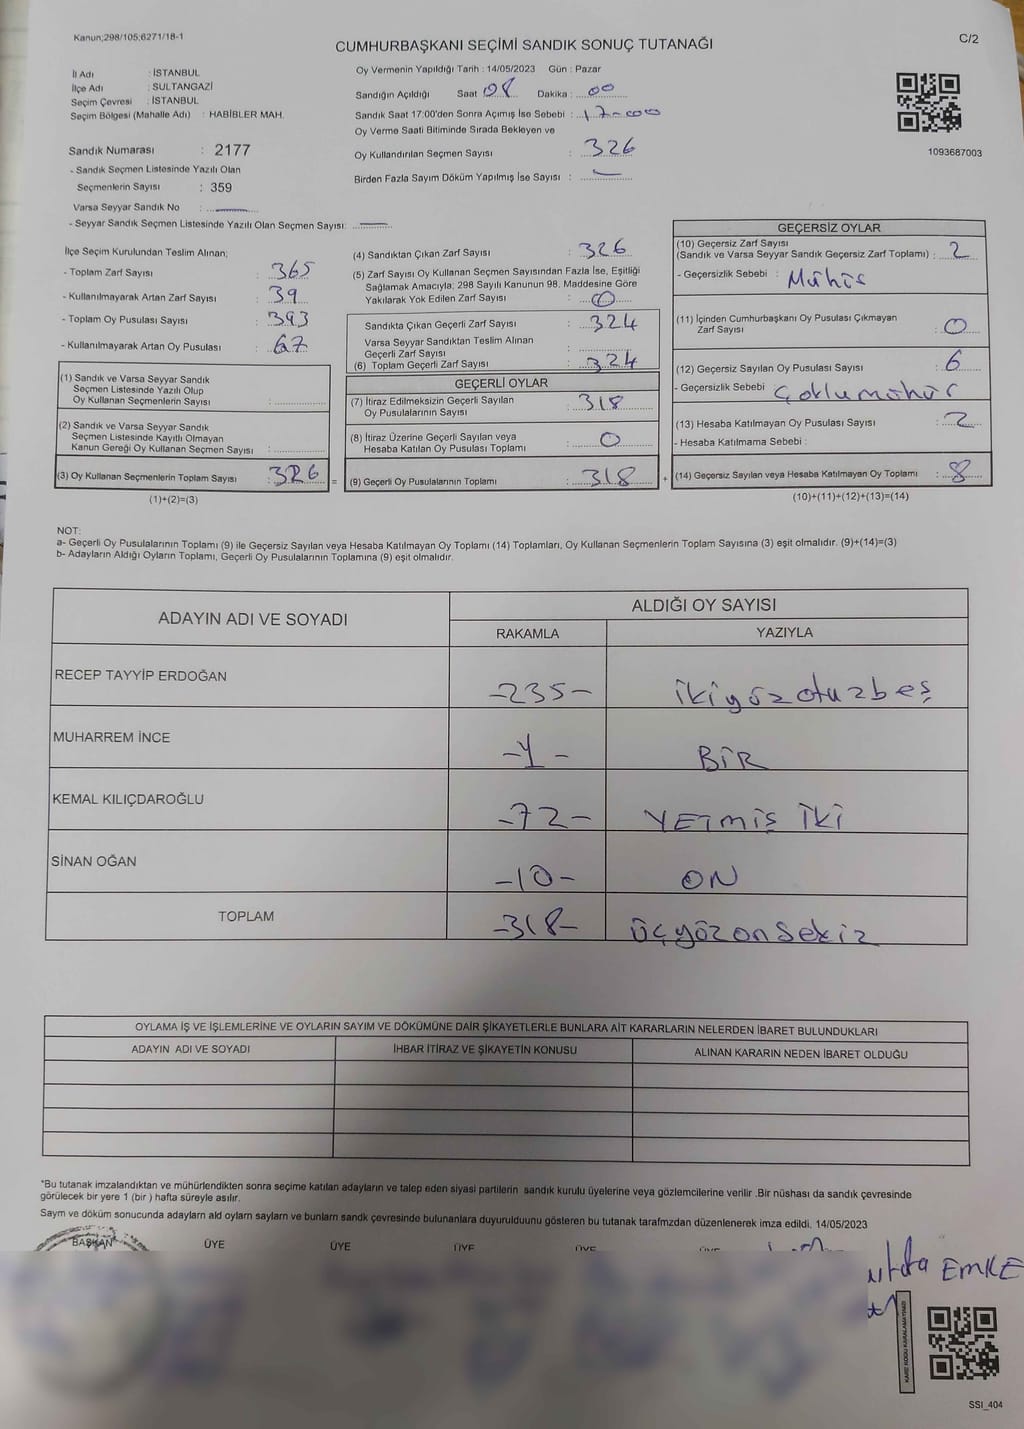 Kanun;298/105;6271/18-1
C/2
CUMHURBAŞKANI SEÇİMİ SANDIK SONUÇ TUTANAĞI
İl Adı : İSTANBUL
İlçe Adı : SULTANGAZİ
Seçim Çevresi : İSTANBUL
Seçim Bölgesi (Mahalle Adı) : HABİBLER MAH.
Sandık Numarası : 2177
- Sandık Seçmen Listesinde Yazılı Olan
Seçmenlerin Sayısı : 359
Varsa Seyyar Sandık No :
- Seyyar Sandık Seçmen Listesinde Yazılı Olan Seçmen Sayısı:
Oy Vermenin Yapıldığı Tarih : 14/05/2023 Gün : Pazar
Sandığın Açıldığı Saat 08 Dakika : 00
Sandık Saat 17:00'den Sonra Açımış İse Sebebi : 17-000
Oy Verme Saati Bitiminde Sırada Bekleyen ve
Oy Kullandırılan Seçmen Sayısı : 326
Birden Fazla Sayım Döküm Yapılmış İse Sayısı :
1093687003
İlçe Seçim Kurulundan Teslim Alınan;
- Toplam Zarf Sayısı : 365
- Kullanılmayarak Artan Zarf Sayısı : 39
- Toplam Oy Pusulası Sayısı : 393
- Kullanılmayarak Artan Oy Pusulası : 67
(1) Sandık ve Varsa Seyyar Sandık
Seçmen Listesinde Yazılı Olup
Oy Kullanan Seçmenlerin Sayısı :
(2) Sandık ve Varsa Seyyar Sandık
Seçmen Listesinde Kayıtlı Olmayan
Kanun Gereği Oy Kullanan Seçmen Sayısı :
(3) Oy Kullanan Seçmenlerin Toplam Sayısı : 326 =
(1)+(2)=(3)
(4) Sandıktan Çıkan Zarf Sayısı : 326
(5) Zarf Sayısı Oy Kullanan Seçmen Sayısından Fazla İse, Eşitliği
Sağlamak Amacıyla; 298 Sayılı Kanunun 98. Maddesine Göre
Yakılarak Yok Edilen Zarf Sayısı : 0
Sandıkta Çıkan Geçerli Zarf Sayısı : 324
Varsa Seyyar Sandıktan Teslim Alınan
Geçerli Zarf Sayısı :
(6) Toplam Geçerli Zarf Sayısı : 324
GEÇERLİ OYLAR
(7) İtiraz Edilmeksizin Geçerli Sayılan
Oy Pusulalarının Sayısı : 318
(8) İtiraz Üzerine Geçerli Sayılan veya
Hesaba Katılan Oy Pusulası Toplamı : 0
(9) Geçerli Oy Pusulalarının Toplamı : 318 +
GEÇERSİZ OYLAR
(10) Geçersiz Zarf Sayısı
(Sandık ve Varsa Seyyar Sandık Geçersiz Zarf Toplamı) : 2
- Geçersizlik Sebebi :
(11) İçinden Cumhurbaşkanı Oy Pusulası Çıkmayan
Zarf Sayısı : 0
(12) Geçersiz Sayılan Oy Pusulası Sayısı : 6
- Geçersizlik Sebebi : Çoklumühür
(13) Hesaba Katılmayan Oy Pusulası Sayısı : 2
- Hesaba Katılmama Sebebi :
(14) Geçersiz Sayılan veya Hesaba Katılmayan Oy Toplamı : 8
(10)+(11)+(12)+(13)=(14)
NOT:
a- Geçerli Oy Pusulalarının Toplamı (9) ile Geçersiz Sayılan veya Hesaba Katılmayan Oy Toplamı (14) Toplamları, Oy Kullanan Seçmenlerin Toplam Sayısına (3) eşit olmalıdır. (9)+(14)=(3)
b- Adayların Aldığı Oyların Toplamı, Geçerli Oy Pusulalarının Toplamına (9) eşit olmalıdır.
ADAYIN ADI VE SOYADI
ALDIĞI OY SAYISI
RAKAMLA YAZIYLA
RECEP TAYYİP ERDOĞAN -235- ikiyüzotuzbeş
MUHARREM İNCE -1- BİR
KEMAL KILIÇDAROĞLU -72- YETMİŞ İKİ
SİNAN OĞAN -10- ON
TOPLAM -318- üçyüzonsekiz
OYLAMA İŞ VE İŞLEMLERİNE VE OYLARIN SAYIM VE DÖKÜMÜNE DAİR ŞİKAYETLERLE BUNLARA AİT KARARLARIN NELERDEN İBARET BULUNDUKLARI
ADAYIN ADI VE SOYADI İHBAR İTİRAZ VE ŞİKAYETİN KONUSU ALINAN KARARIN NEDEN İBARET OLDUĞU
*Bu tutanak imzalandıktan ve mühürlendikten sonra seçime katılan adayların ve talep eden siyasi partilerin sandık kurulu üyelerine veya gözlemcilerine verilir .Bir nüshası da sandık çevresinde
görülecek bir yere 1 (bir ) hafta süreyle asılır.
Sayım ve döküm sonucunda adayların ald oyların sayların ve bunların sandk çevresinde bulunanlara duyurulduunu gösteren bu tutanak tarafmzdan düzenlenerek imza edildi. 14/05/2023
BAŞKAN ÜYE ÜYE ÜYE ÜYE ÜYE
EMRE
KARE KODU KARALAMAYINIZ!
SSI_404